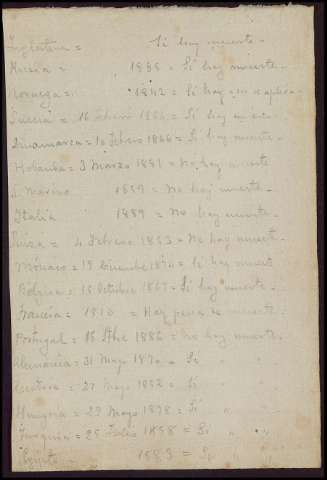 Inglaterra = Si hay muerte -
Rusia = 1888 = Si hay muerte -
Noruega = 1842 = Si hay =
Suecia = 16 Febrero 1864 = Si hay
Dinamarca = 10 Febrero 1866 = Si hay muerte -
Holanda = 3 Marzo 1881 = No hay muerte
S. Marino 1859 = No hay muerte -
Italia 1889 = No hay muerte -
Suiza = 4 Febrero 1853 = No hay muerte -
Mónaco = 19 Diciembre 1874 = Si hay muert
Bélgica = 15 Octubre 1867 = Si hay muerte -
Francia = 1810 = Hay pena de muerte -
Portugal = 16 Stbe 1886 = No hay muerte -
Alemania = 31 Mayo 1870 = Si " "
27 Mayo 1852 = Si " "
Hungria = 29 Mayo 1878 = Si " "
Turquia = 25 Julio 1858 = Si " "
Egipto = 1883 = Si "